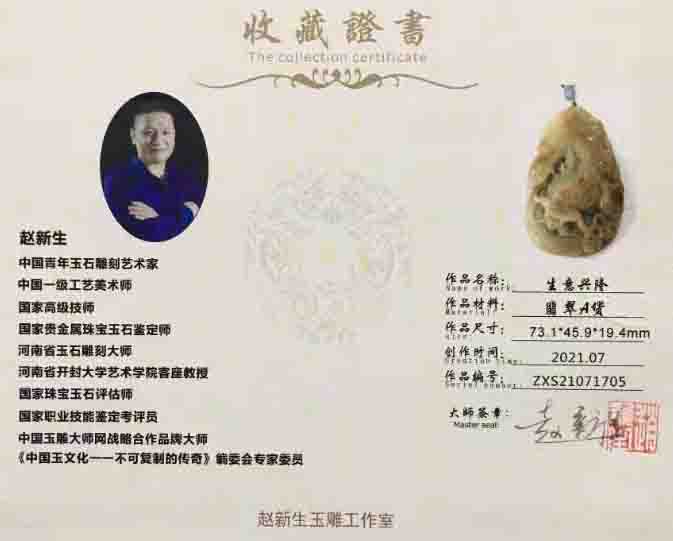 收藏證書
The collection certificate
赵新生
中国青年玉石雕刻艺术家
中国一级工艺美术师
国家高级技师
国家贵金属珠宝玉石鉴定师
河南省玉石雕刻大师
河南省开封大学艺术学院客座教授
国家珠宝玉石评估师
国家职业技能鉴定考评员
中国玉雕大师网战略合作品牌大师
《中国玉文化一一不可复制的传奇》编委会专家委员
作品名称: 生意兴隆
Name of work:
作品材料: 翡翠A货
Material:
作品尺寸: 73.1*45.9*19.4mm
size:
创作时间: 2021.07
Creation time:
作品编号: ZXS21071705
Serial number:
大师签章:
Master seal:
赵新生玉雕工作室